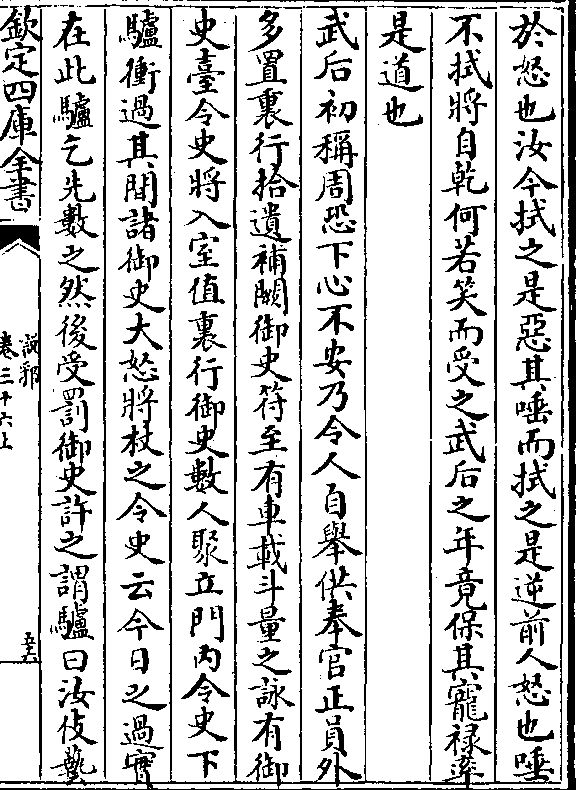 於怒也汝今拭之是惡其唾而拭之是逆前人怒也唾
不拭將自乾何若笑而受之武后之年竟保其寵禄率
是道也
武后初稱周恐下心不安乃令人自舉供奉官正員外
多置裏行拾遺補闕御史符至有車載斗量之詠有御
史臺令史將入室值裏行御史數人聚立門内令史下
驢衝過其間諸御史大怒將杖之令史云今日之過實
在此驢乞先數之然後受罰御史許之謂驢曰汝伎藝
欽定四庫全書
説郛
卷三十六上